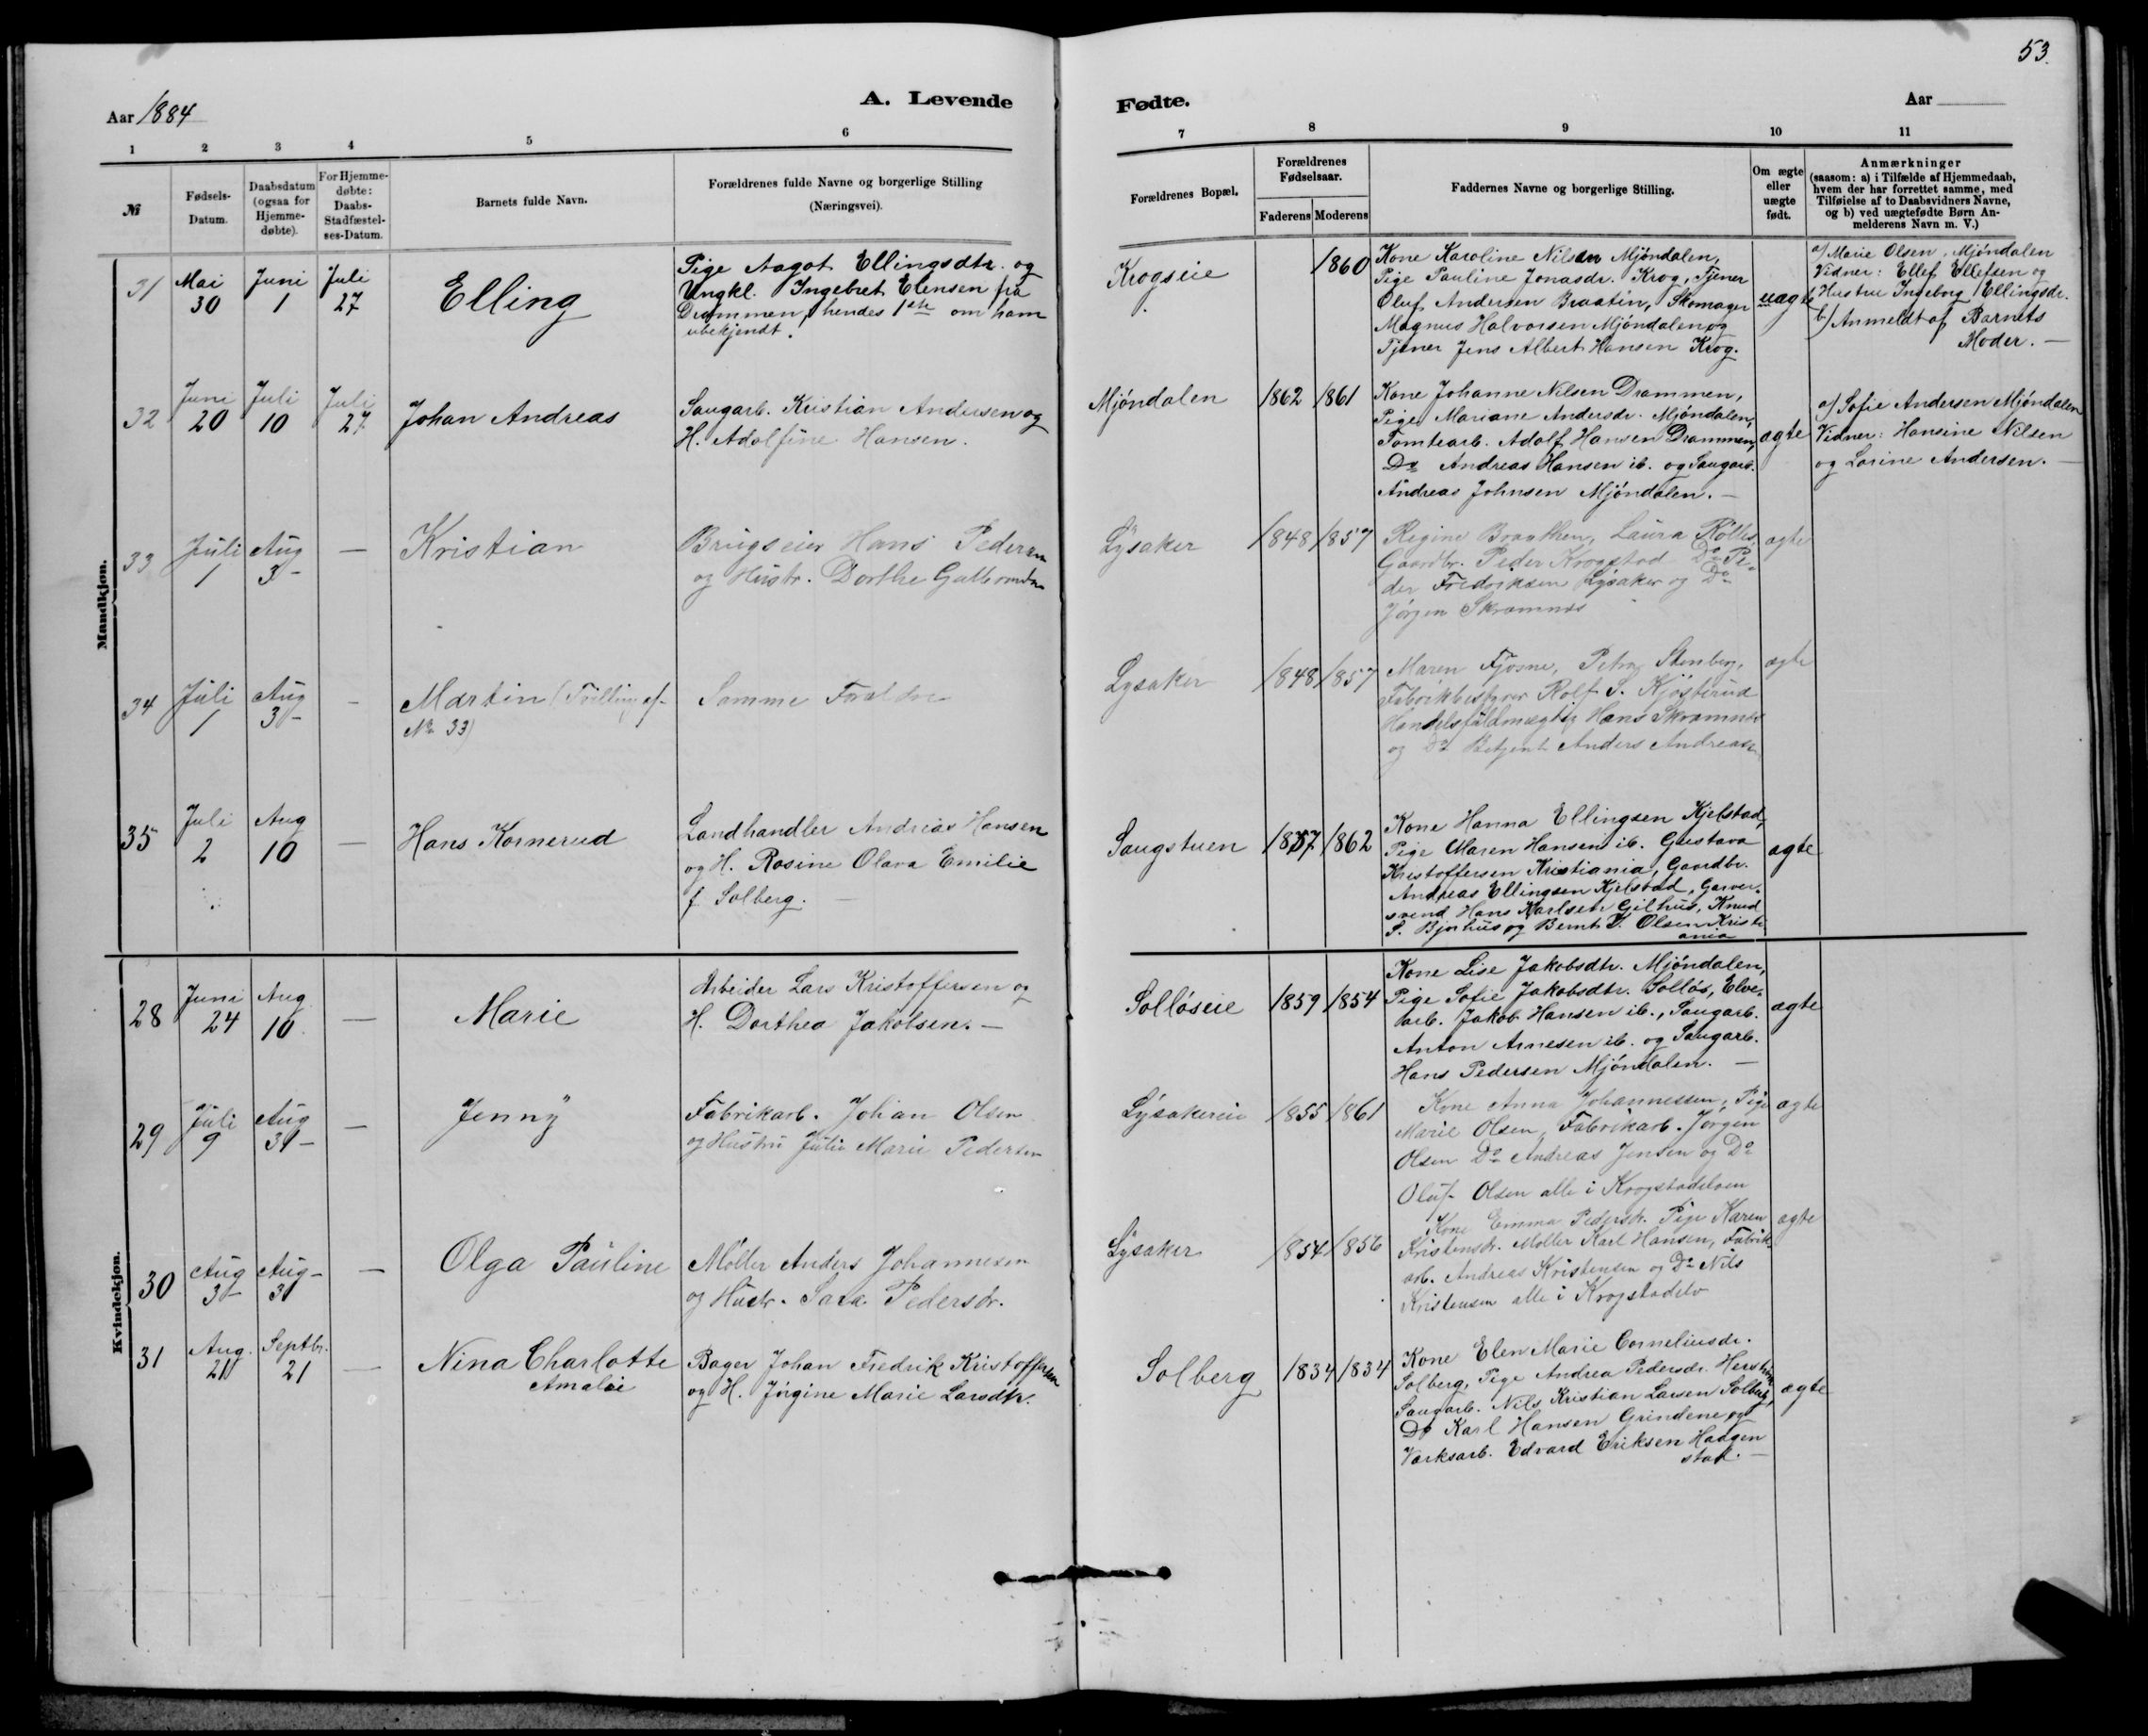 53.
Aar 1884
A. Levende
Fødte.
Aar
1
2
3
4
5
6
7
8
9
10
11
№
Fødsels-
Datum.
Daabsdatum
(ogsaa for
Hjemme-
døbte).
For Hjemme-
døbte:
Daabs-
Stadfæstel-
ses-Datum.
Barnets fulde Navn.
Forældrenes fulde Navne og borgerlige Stilling
(Næringsvei).
Forældrenes Bopæl.
Forældrenes
Fødselsaar.
Faderens
Moderens
Faddernes Navne og borgerlige Stilling.
Om ægte
eller
uægte
født.
Anmærkninger
(saasom: a) i Tilfælde af Hjemmedaab,
hvem der har forrettet samme, med
Tilføielse af to Daabsvidners Navne,
og b) ved uægtefødte Børn An-
melderens Navn m. V.)
Mandkjøn.
31
Mai
30
Juni
1
Juli
27
Elling
Pige Aagot Ellingsdtr. og
Ungkl. Ingebret Elensen fra
Drammen, hendes 1ste om ham
ubekjendt.
Krogseie
1860
Kone Karoline Nilsen Mjöndalen,
Pige Pauline Jonasdr. Krog, Tjener
Oluf Andersen Braatin, Skomager
Magnus Halvorsen Mjöndalen og
Tjener Jens Albert Hansen Krog.
uægte
a) Marie Olsen, Mjöndalen
Vidner: Ellef Ellefsen og
Hustru Ingeborg Ellingsdr.
b) Anmeldt af Barnets
Moder. —
32
Juni
20
Juli
10
Juli
27
Johan Andreas
Saugarb. Kristian Andersen og
H. Adolfine Hansen.
Mjöndalen
1862
1861
Kone Johanne Nilsen Drammen,
Pige Mariane Andersdr. Mjöndalen,
Tomtearb. Adolf Hansen Drammen,
Do Andreas Hansen ib. og Saugarb.
Andreas Johnsen Mjöndalen. —
ægte
a) Sofie Andersen Mjöndalen
Vidner: Hansine Nilsen
og Lorine Andersen. —
33
Juli
1
Aug
3
—
Kristian
Brugseier Hans Pedersen
og Hustr. Dorthe
Lysaker
1848
1857
Regine Braathen, Laura
Gaardbr. Peder Krogstad Do Pe-
der Fredriksen Lysaker og Do
Jörgen Skramnes
ægte
34
Juli
1
Aug
3
—
Martin (Tvilling af
No 33)
Samme Forældre
Lysaker
1848
1857
Maren Fjosne, Petra Stenberg,
Fabrikbestyrer Rolf S. Kjösterud
Handelsfuldmægtig Hans Skramnes
og Do Betjent Anders Andreasen
ægte
35
Juli
2
Aug
10
—
Hans Kornerud
Landhandler Andreas Hansen
og H. Rosine Olava Emilie
f Solberg. —
Saugstuen
1857
1862
Kone Hanna Ellingsen Kjelstad,
Pige Maren Hansen ib. Gustava
Kristoffersen Kristiania, Gaardbr.
Andreas Ellingsen Kjelstad, Garver-
svend Hans Karlsen Gilhus, Knud
S. Bjerhus og Bernt K. Olsen Kristi
ania
ægte
Kvindekjøn.
28
Juni
24
Aug
10
—
Marie
Arbeider Lars Kristoffersen og
H. Dorthea Jakobsen. —
Sollöseie
1859
1854
Kone Lise Jakobsdtr. Mjöndalen,
Pige Sofie Jakobsdtr. Sollös, Elve-
arb. Jakob Hansen ib., Saugarb.
Anton Arnesen ib. og Saugarb.
Hans Pedersen Mjöndalen. —
ægte
29
Juli
9
Aug
31
—
Jenny
Fabrikarb. Johan Olsen
og Hustru Julie Marie Pedersen
Lysakereie
1855
1861
Kone Anna Johannessen, Pige
Marie Olsen, Fabrikarb. Jörgen
Olsen Do Andreas Jensen og Do
Oluf Olsen alle i Krogstadelven
ægte
30
Aug
3
Aug
31
—
Olga Pauline
Möller Anders Johannesen
og Hustr. Sara Pedersdr.
Lysaker
1854
1856
Kone Emma Pedersdr. Pige Karen
Kristensdr. Möller Karl Hansen, Fabrik-
arb. Andreas Kristensen og Do Nils
Kristensen alle i Krogstadelv
ægte
31
Aug.
21
Septbr.
21
—
Nina Charlotte
Amalie
Bager Johan Fredrik Kristoffersen
og H. Jörgine Marie Larsdtr.
Solberg
1834
1834
Kone Elen Marie Corneliusdr.
Solberg, Pige Andrea Pedersdr.
Saugarb. Nils Kristian Larsen Solberg,
Do Karl Hansen Grindene og
Værksarb. Edvard Eriksen Haagen
stad. —
ægte